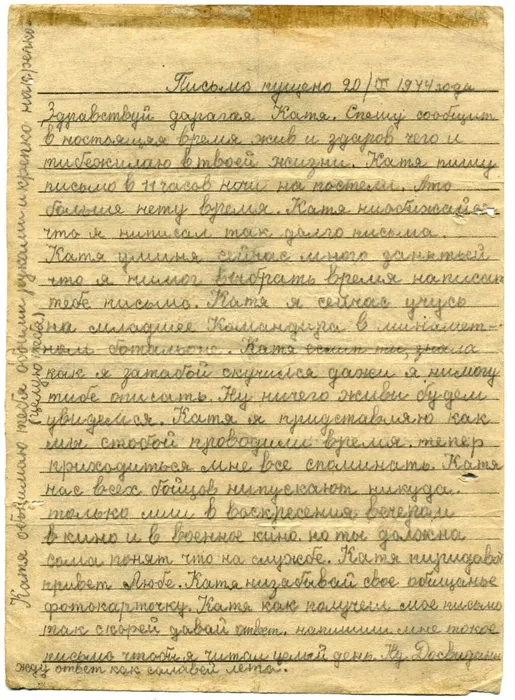 Письмо пущено 20/IX 1944 года
Здравствуй дарагая Катя. Спешу сообщит
в ностоящяя время жив и здаров чего и
тибежилаю в твоей жизни. Катя пишу
письмо в 11 часов ночи на постели. Ато
больше нету время. Катя ниобежайся
что я ниписал так долго письма.
Катя уминя сейчас много занятьй
что я нимог выбрать время написат
тебе письмо. Катя я сейчас учусь
на младшее Командира в минамет-
номботальоне. Катя если ты знала
как я затабой скучился дажи я нимогу
тибе описать. Ну ничего живы будем
увидемся. Катя я придставляю как
мы стобой проводили время. тепер
приходиться мне все споминать. Катя
нас всех бойцов нипускают никуда.
только или в воскресения вечером
в кино и в военное кино. но ты должна
сома понят что на службе. Катя пиридовай
привет Любе. Катя низабывай свое обищанье
фотокарточку. Катя как получеш мое письмо
так скорей давай ответ. напишиш мне токое
письмо чтобы я читал целый день. Ну Досвидания
жду ответ как салавей лета.
Катя обнимаю тебя обоими руками и крепко накрепко
(целую тебя)